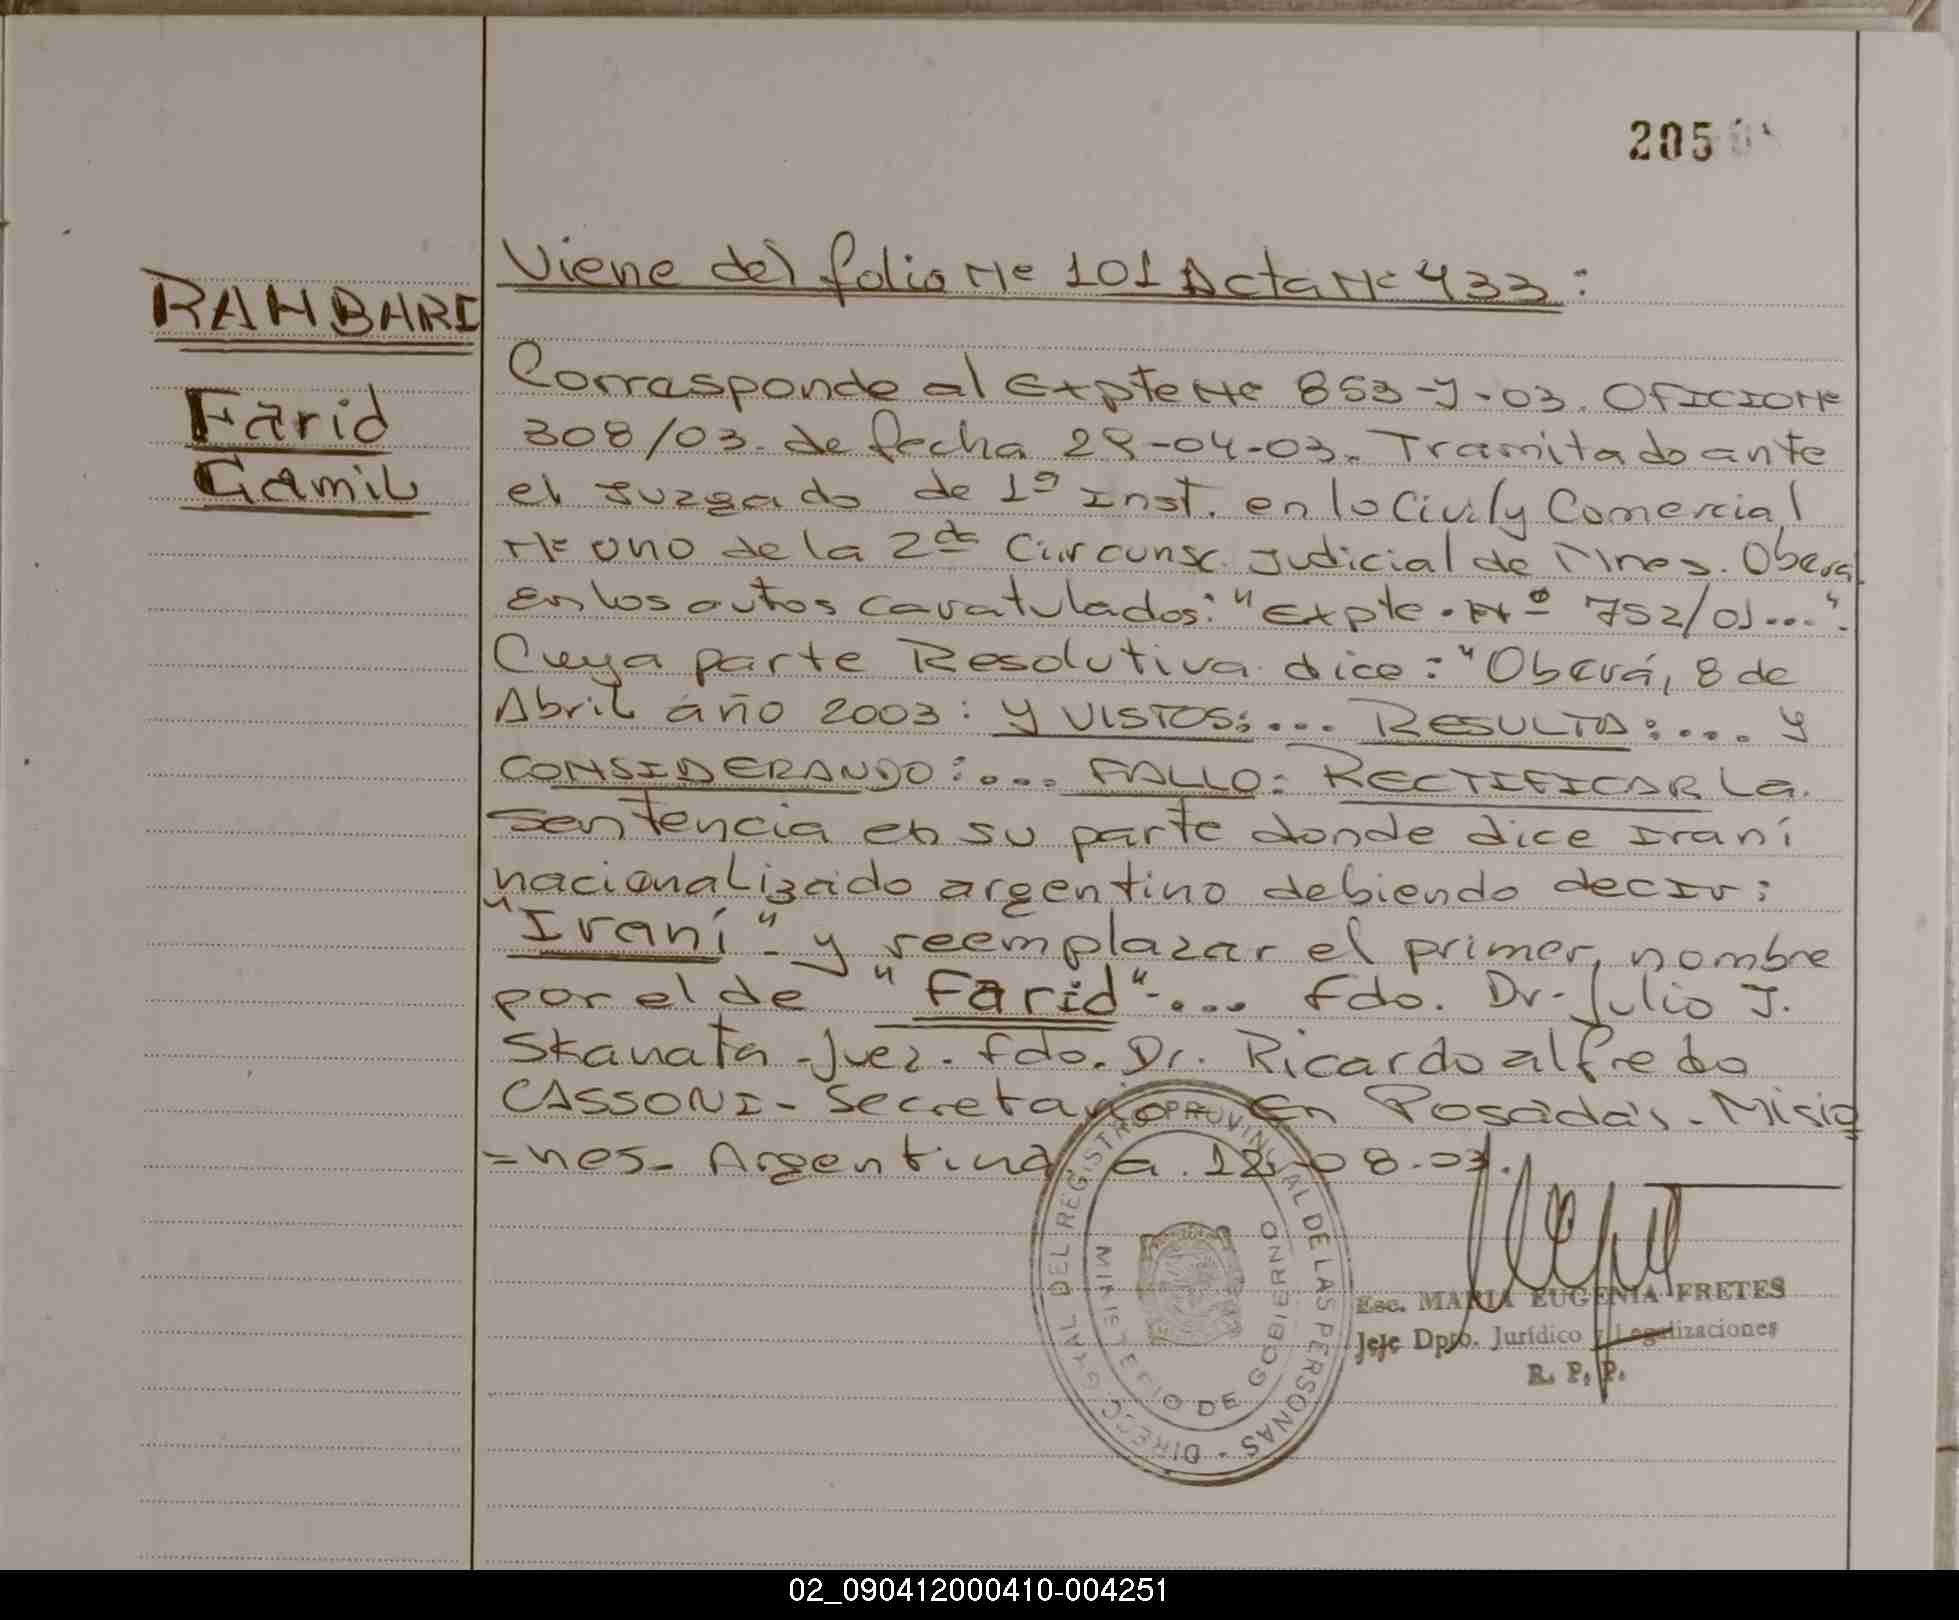 205
RAHBARI
Farid
Gamil
Viene del folio Nº 101 Acta Nº 433:
Corresponde al Expte Nº 853-J-03. OFICIO Nº
308/03. de fecha 29-04-03. Tramitado ante
el Juzgado de 1ª Inst. en lo Civil y Comercial
Nº uno de la 2da Circunsc. Judicial de Mnes. Oberá
en los autos caratulados: "Expte. Nº 752/01...".
Cuya parte Resolutiva dice: "Oberá, 8 de
Abril año 2003: Y VISTOS:... RESULTA:.... Y
CONSIDERANDO:.... FALLO: RECTIFICAR La
Sentencia en su parte donde dice Iraní
nacionalizado argentino debiendo decir:
"Iraní"- y reemplazar el primer nombre
por el de "Farid"-... Fdo. Dr. Julio J.
Skanata - Juez - fdo. Dr. Ricardo alfredo
CASSONI - Secretario - En Posadas - Misio
=nes - Argentina a 12-08-03.
DIRECC. GRAL DEL REGISTRO PROVINCIAL DE LAS PERSONAS -
MINISTERIO DE GOBIERNO
Esc. MARIA EUGENIA FRETES
Jefe Dpto. Jurídico y Legalizaciones
R. P. P.
02_090412000410-004251